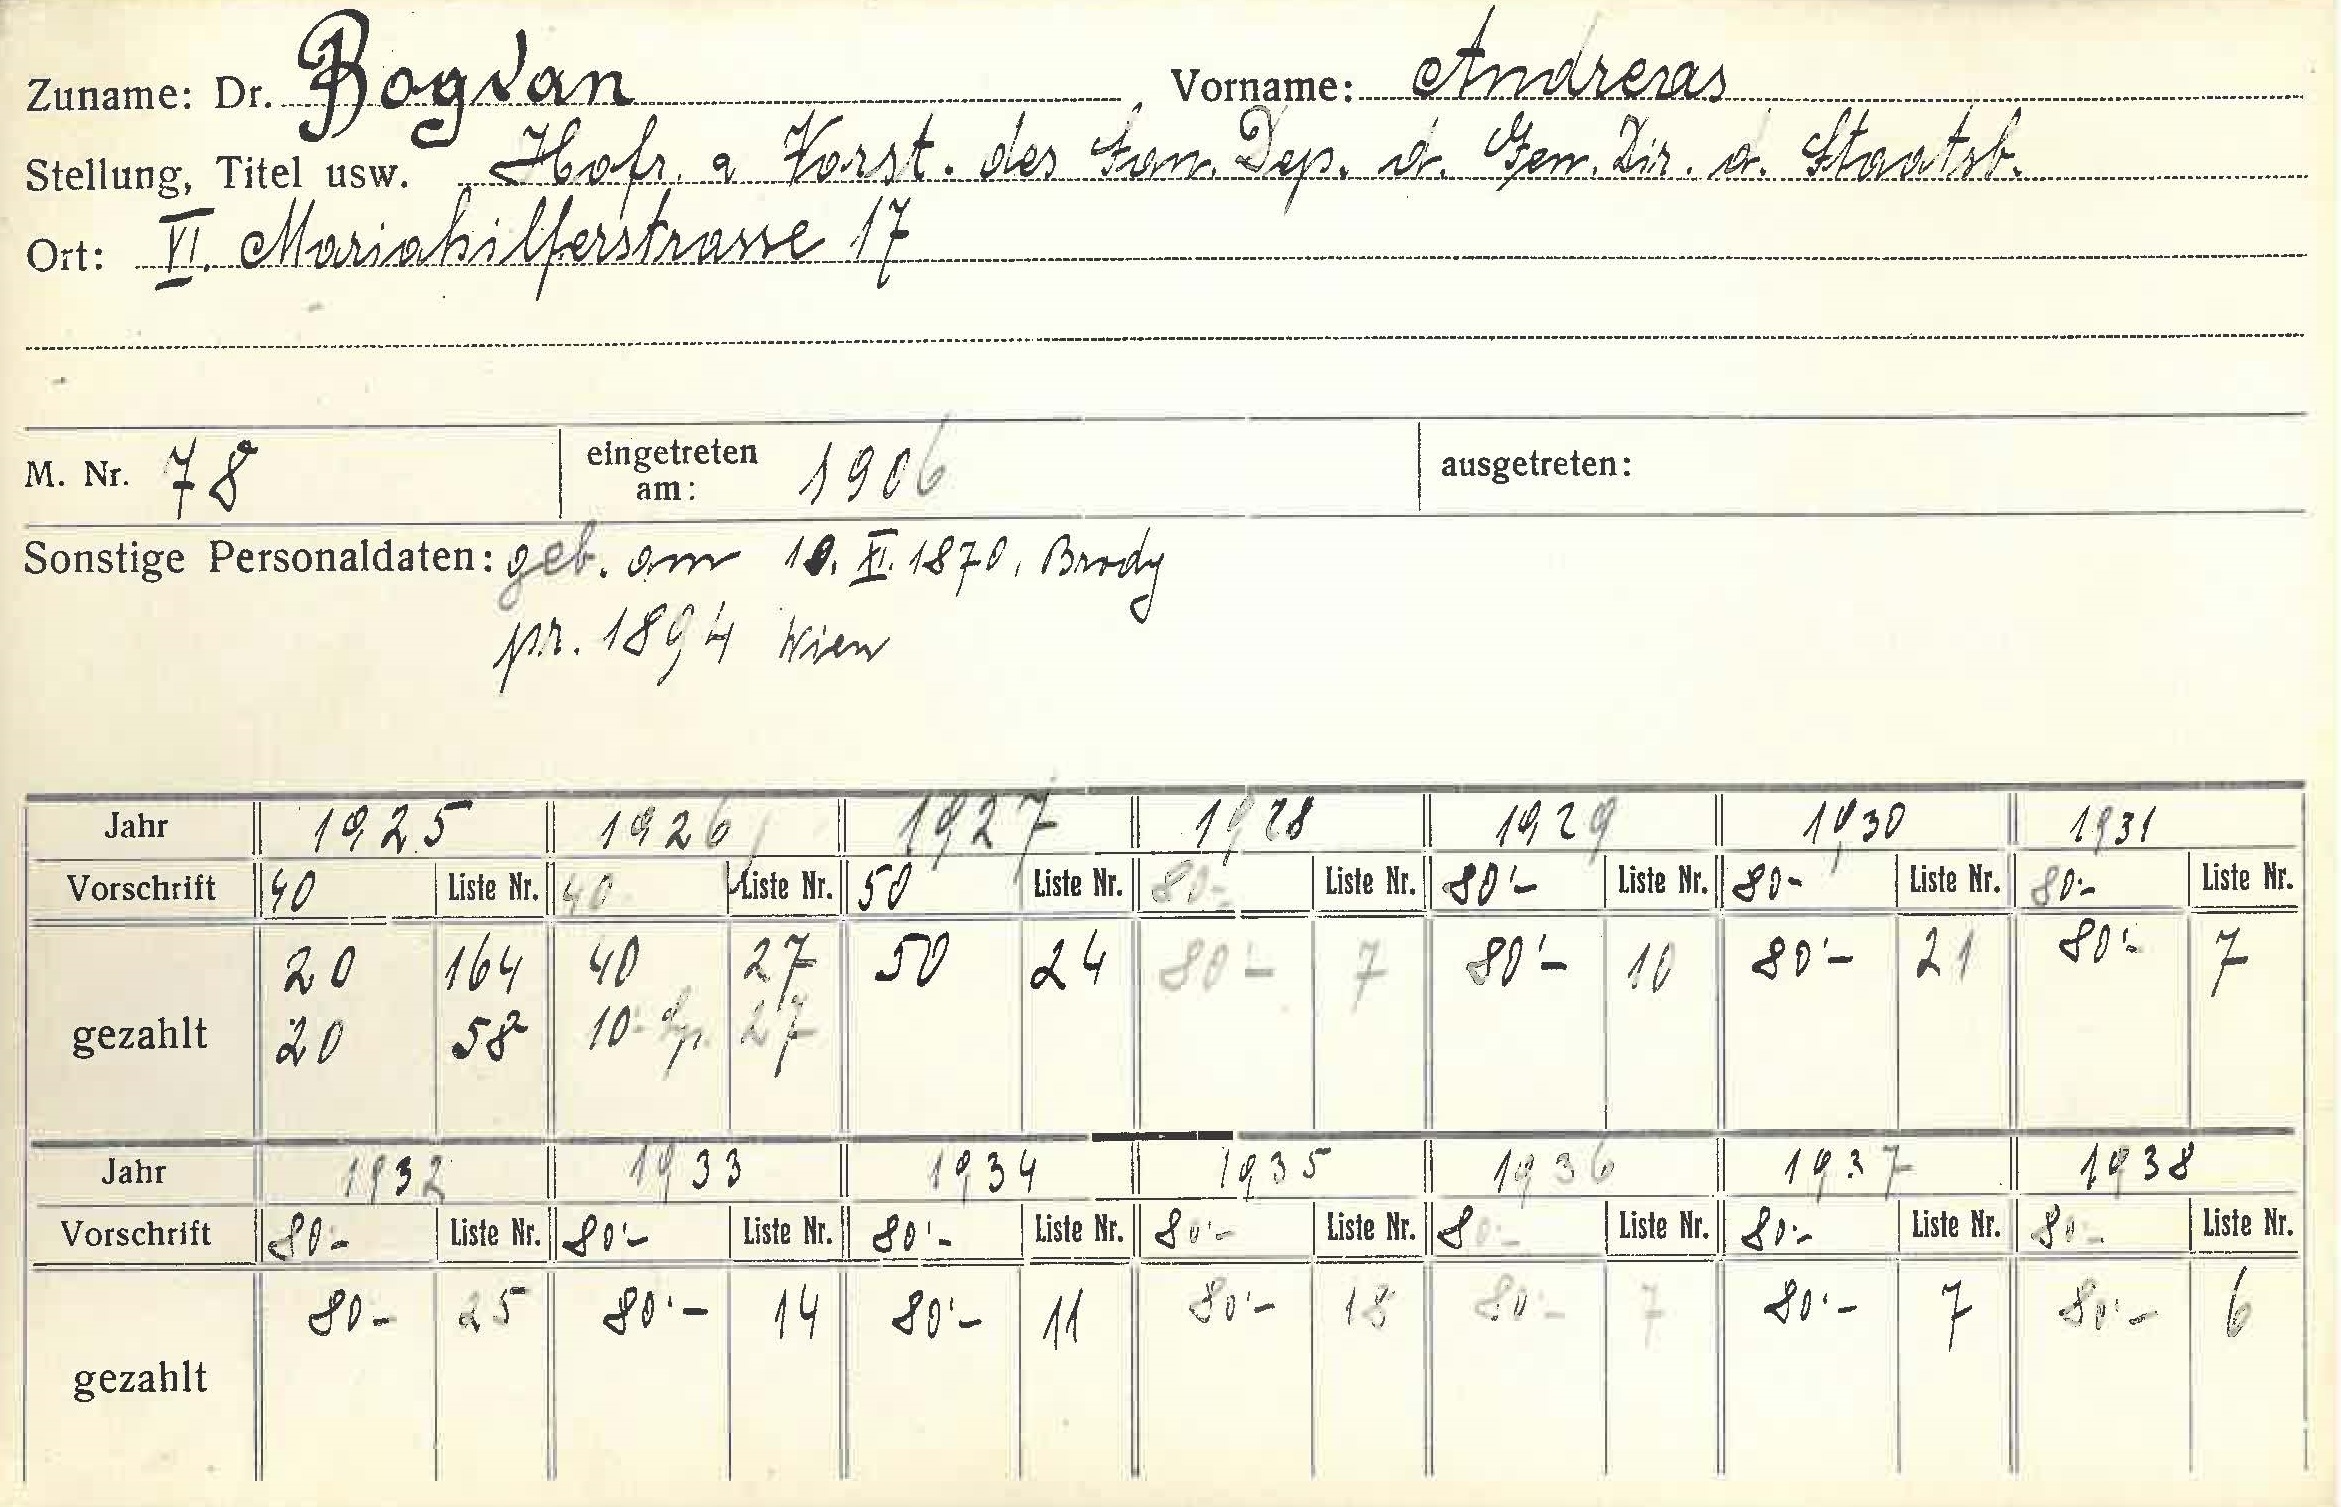 Zuname: Dr. Bogdan Vorname: Andreas
Stellung, Titel usw. Hofr. a Vorst. des San. Dep. d. Gen. Dir. d. Staatsb.
Ort: VI. Mariahilferstrasse 17
M. Nr. 78 eingetreten am: 1906 ausgetreten:
Sonstige Personaldaten: geb. am 10. XI. 1870, Brody
pr. 1894 Wien
Jahr 1925 1926 1927 1928 1929 1930 1931
Vorschrift 40 Liste Nr. 40 Liste Nr. 50 Liste Nr. 80- Liste Nr. 80'- Liste Nr. 80- Liste Nr. 80- Liste Nr.
20 164 40 27 50 24 80'- 7 80'- 10 80'- 21 80'- 7
gezahlt 20 58 10- 27
Jahr 1932 1933 1934 1935 1936 1937 1938
Vorschrift 80- Liste Nr. 80'- Liste Nr. 80'- Liste Nr. 80'- Liste Nr. 80- Liste Nr. 80- Liste Nr. 80- Liste Nr.
80- 25 80'- 14 80'- 11 80'- 18 80'- 7 80'- 7 80'- 6
gezahlt